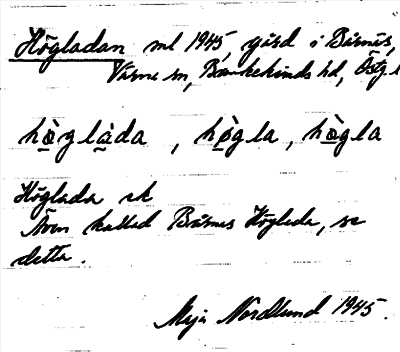 Högladan ml 1945, gård i Bårnäs,
Värna sn, Bankekinds hd, Östg.l
hòglàda, hògla, hògla
Höglada sk
Även kallad Bårnäs Höglada, se
detta.
Maja Nordlund 1945.